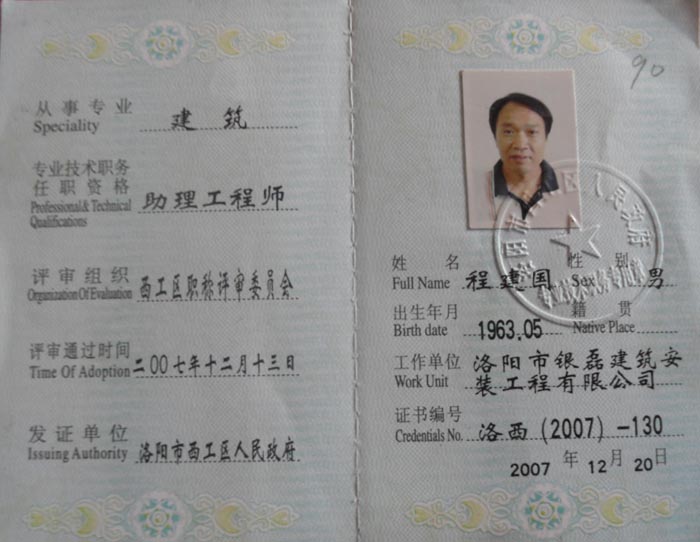 从事专业 建筑
Speciality
专业技术职务
任职资格 助理工程师
Professional& Technical
Qualifications
评审组织 西工区职称评审委员会
Organization Of Evaluation
评审通过时间 二00七年十二月十三日
Time Of Adoption
发证单位 洛阳市西工区人民政府
Issuing Authority
90
姓名 程建国 性别 男
Full Name Sex
出生年月 1963.05 籍贯
Birth date Native Place
工作单位 洛阳市银磊建筑安
Work Unit 装工程有限公司
证书编号 洛西(2007)-130
Credentials No.
2007 年 12 月 20 日